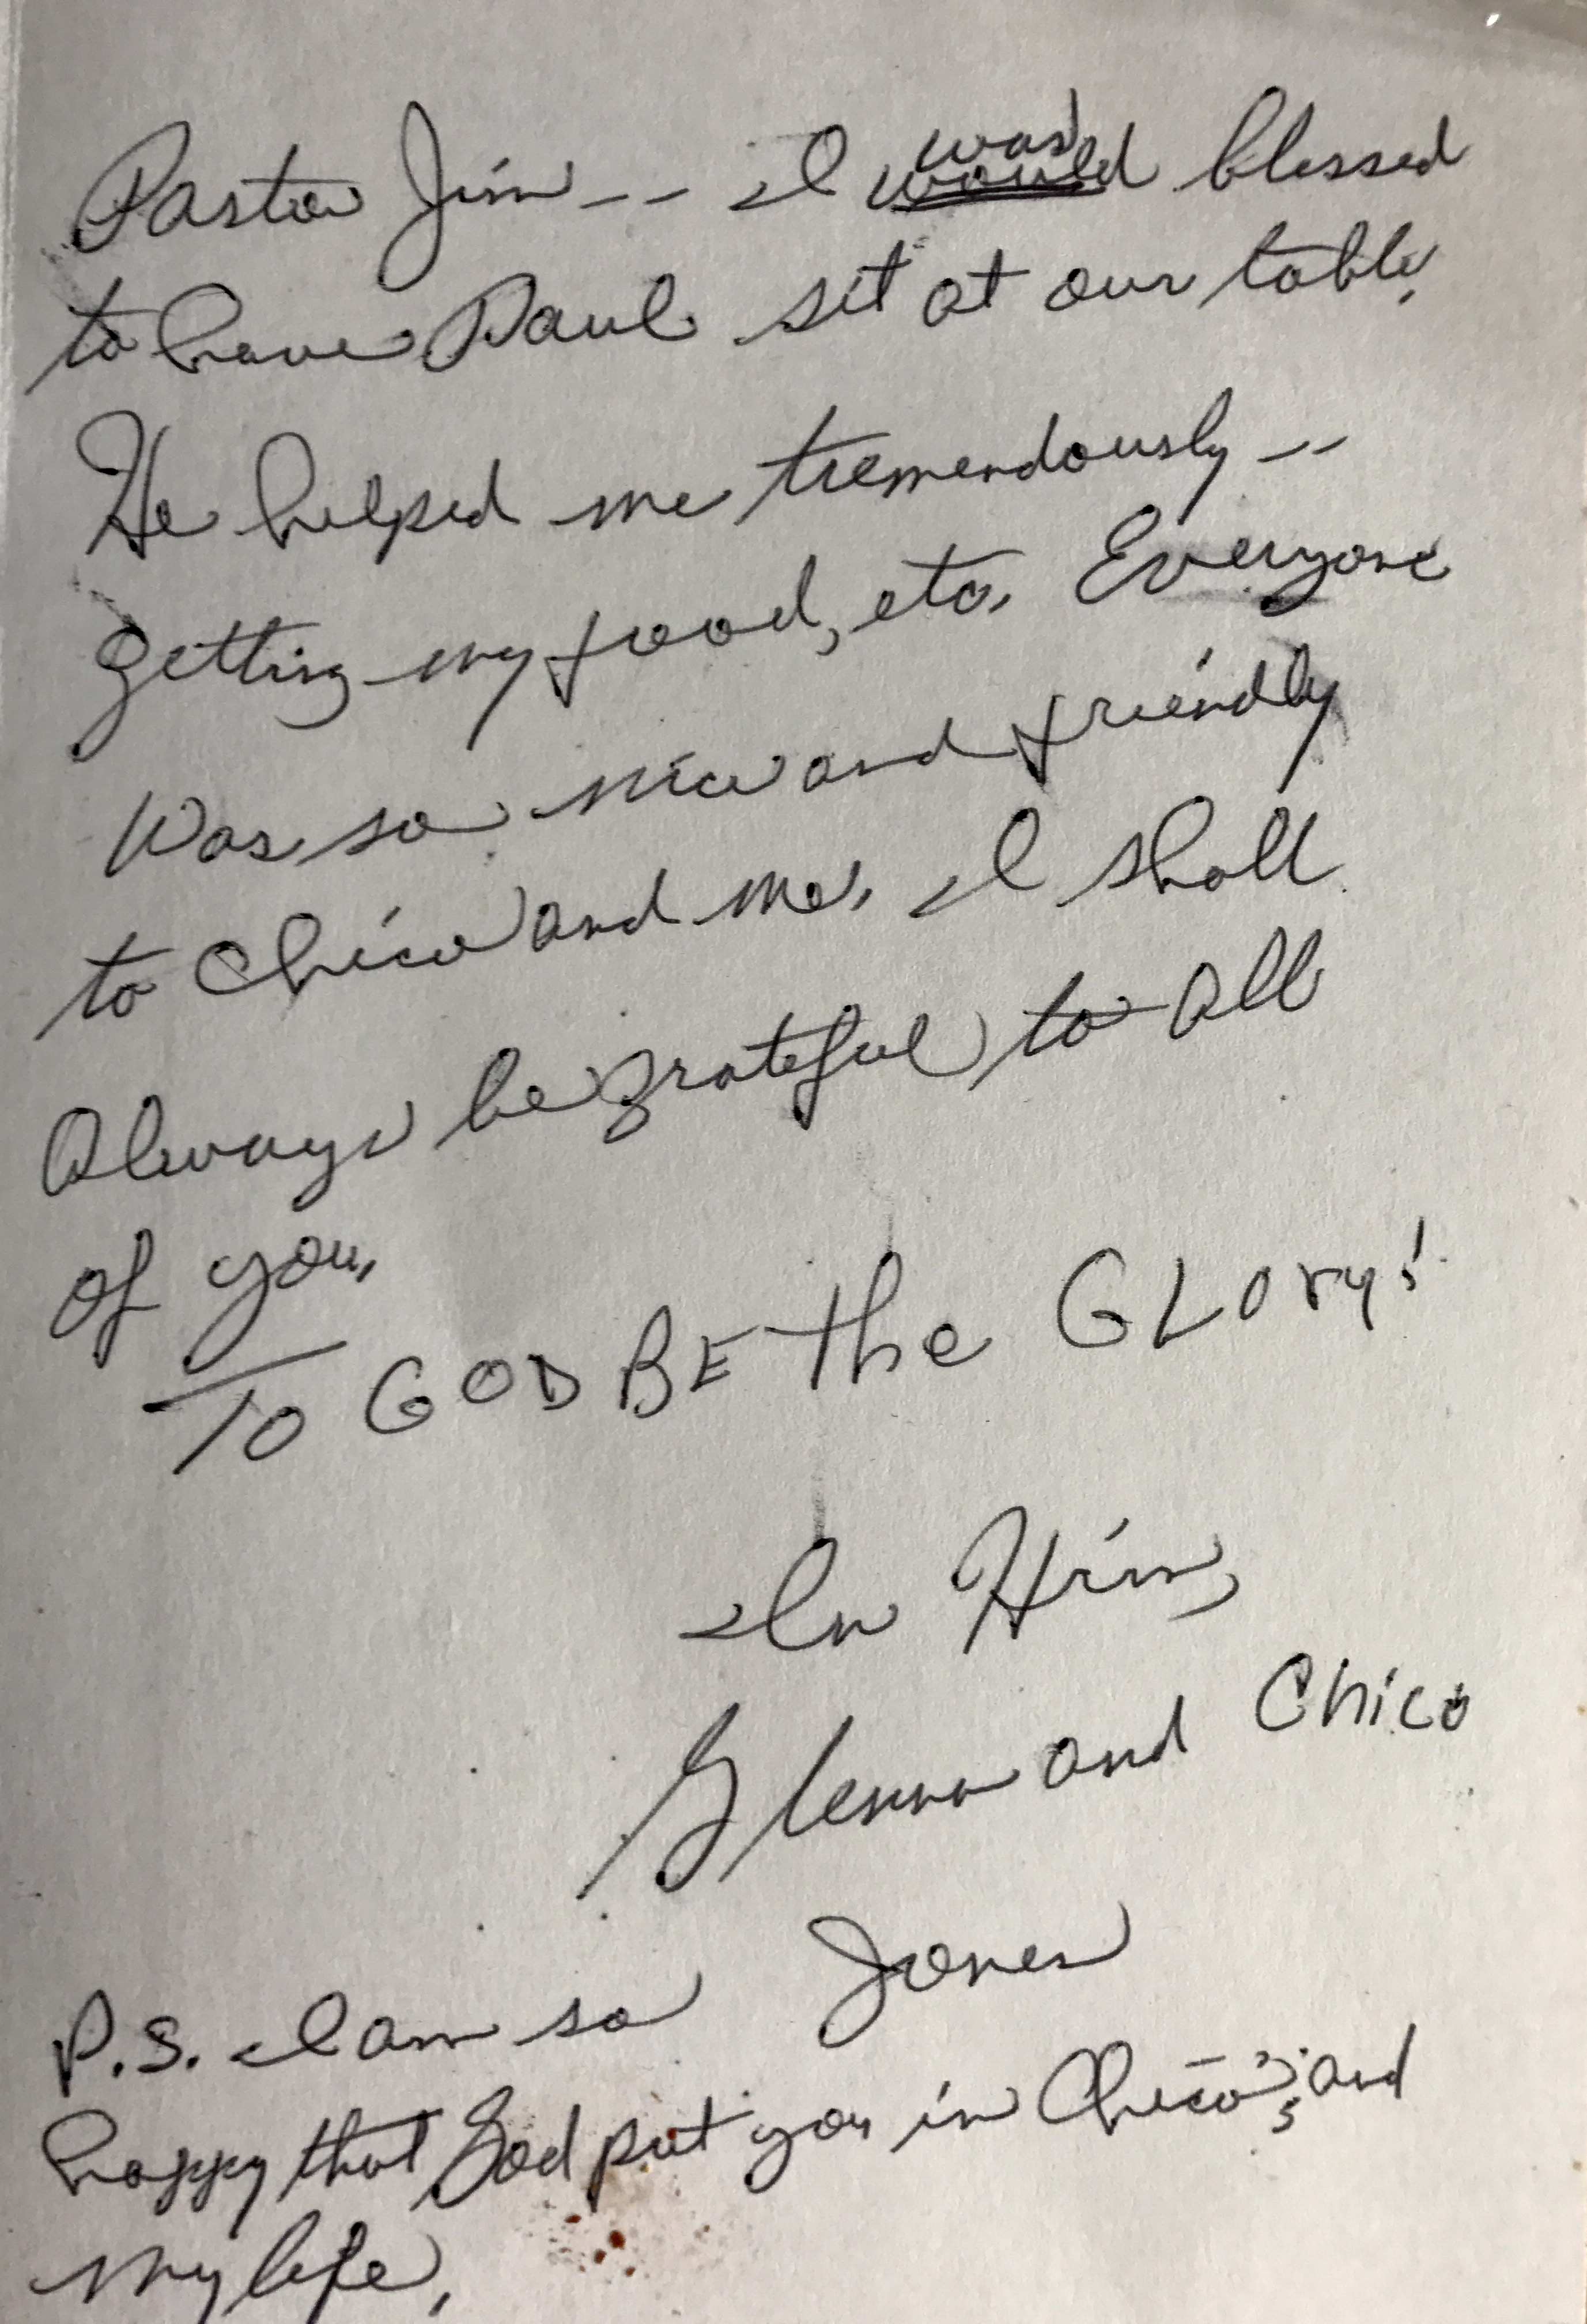 Pastor Jim -- I was would blessed
to have Paul sit at our table.
He helped me tremendously --
getting my food, etc. Everyone
was so nice and friendly
to Chico and me. I shall
always be grateful to all
of you.
TO GOD BE the GLOry!
In Him,
Glenna and Chico
Jones
P.S. I am so
happy that God put you in Chico's and
my life.